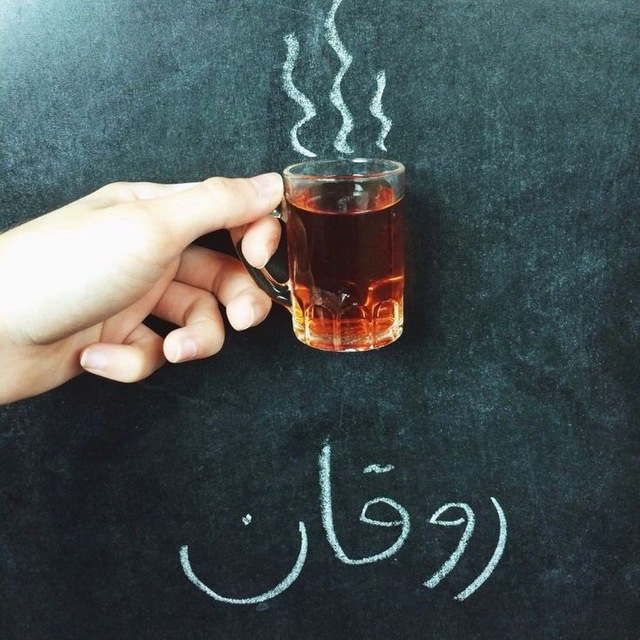 روقان